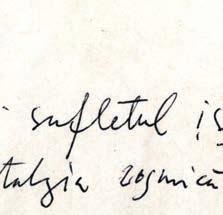 sufletul îș
talgia cosmică